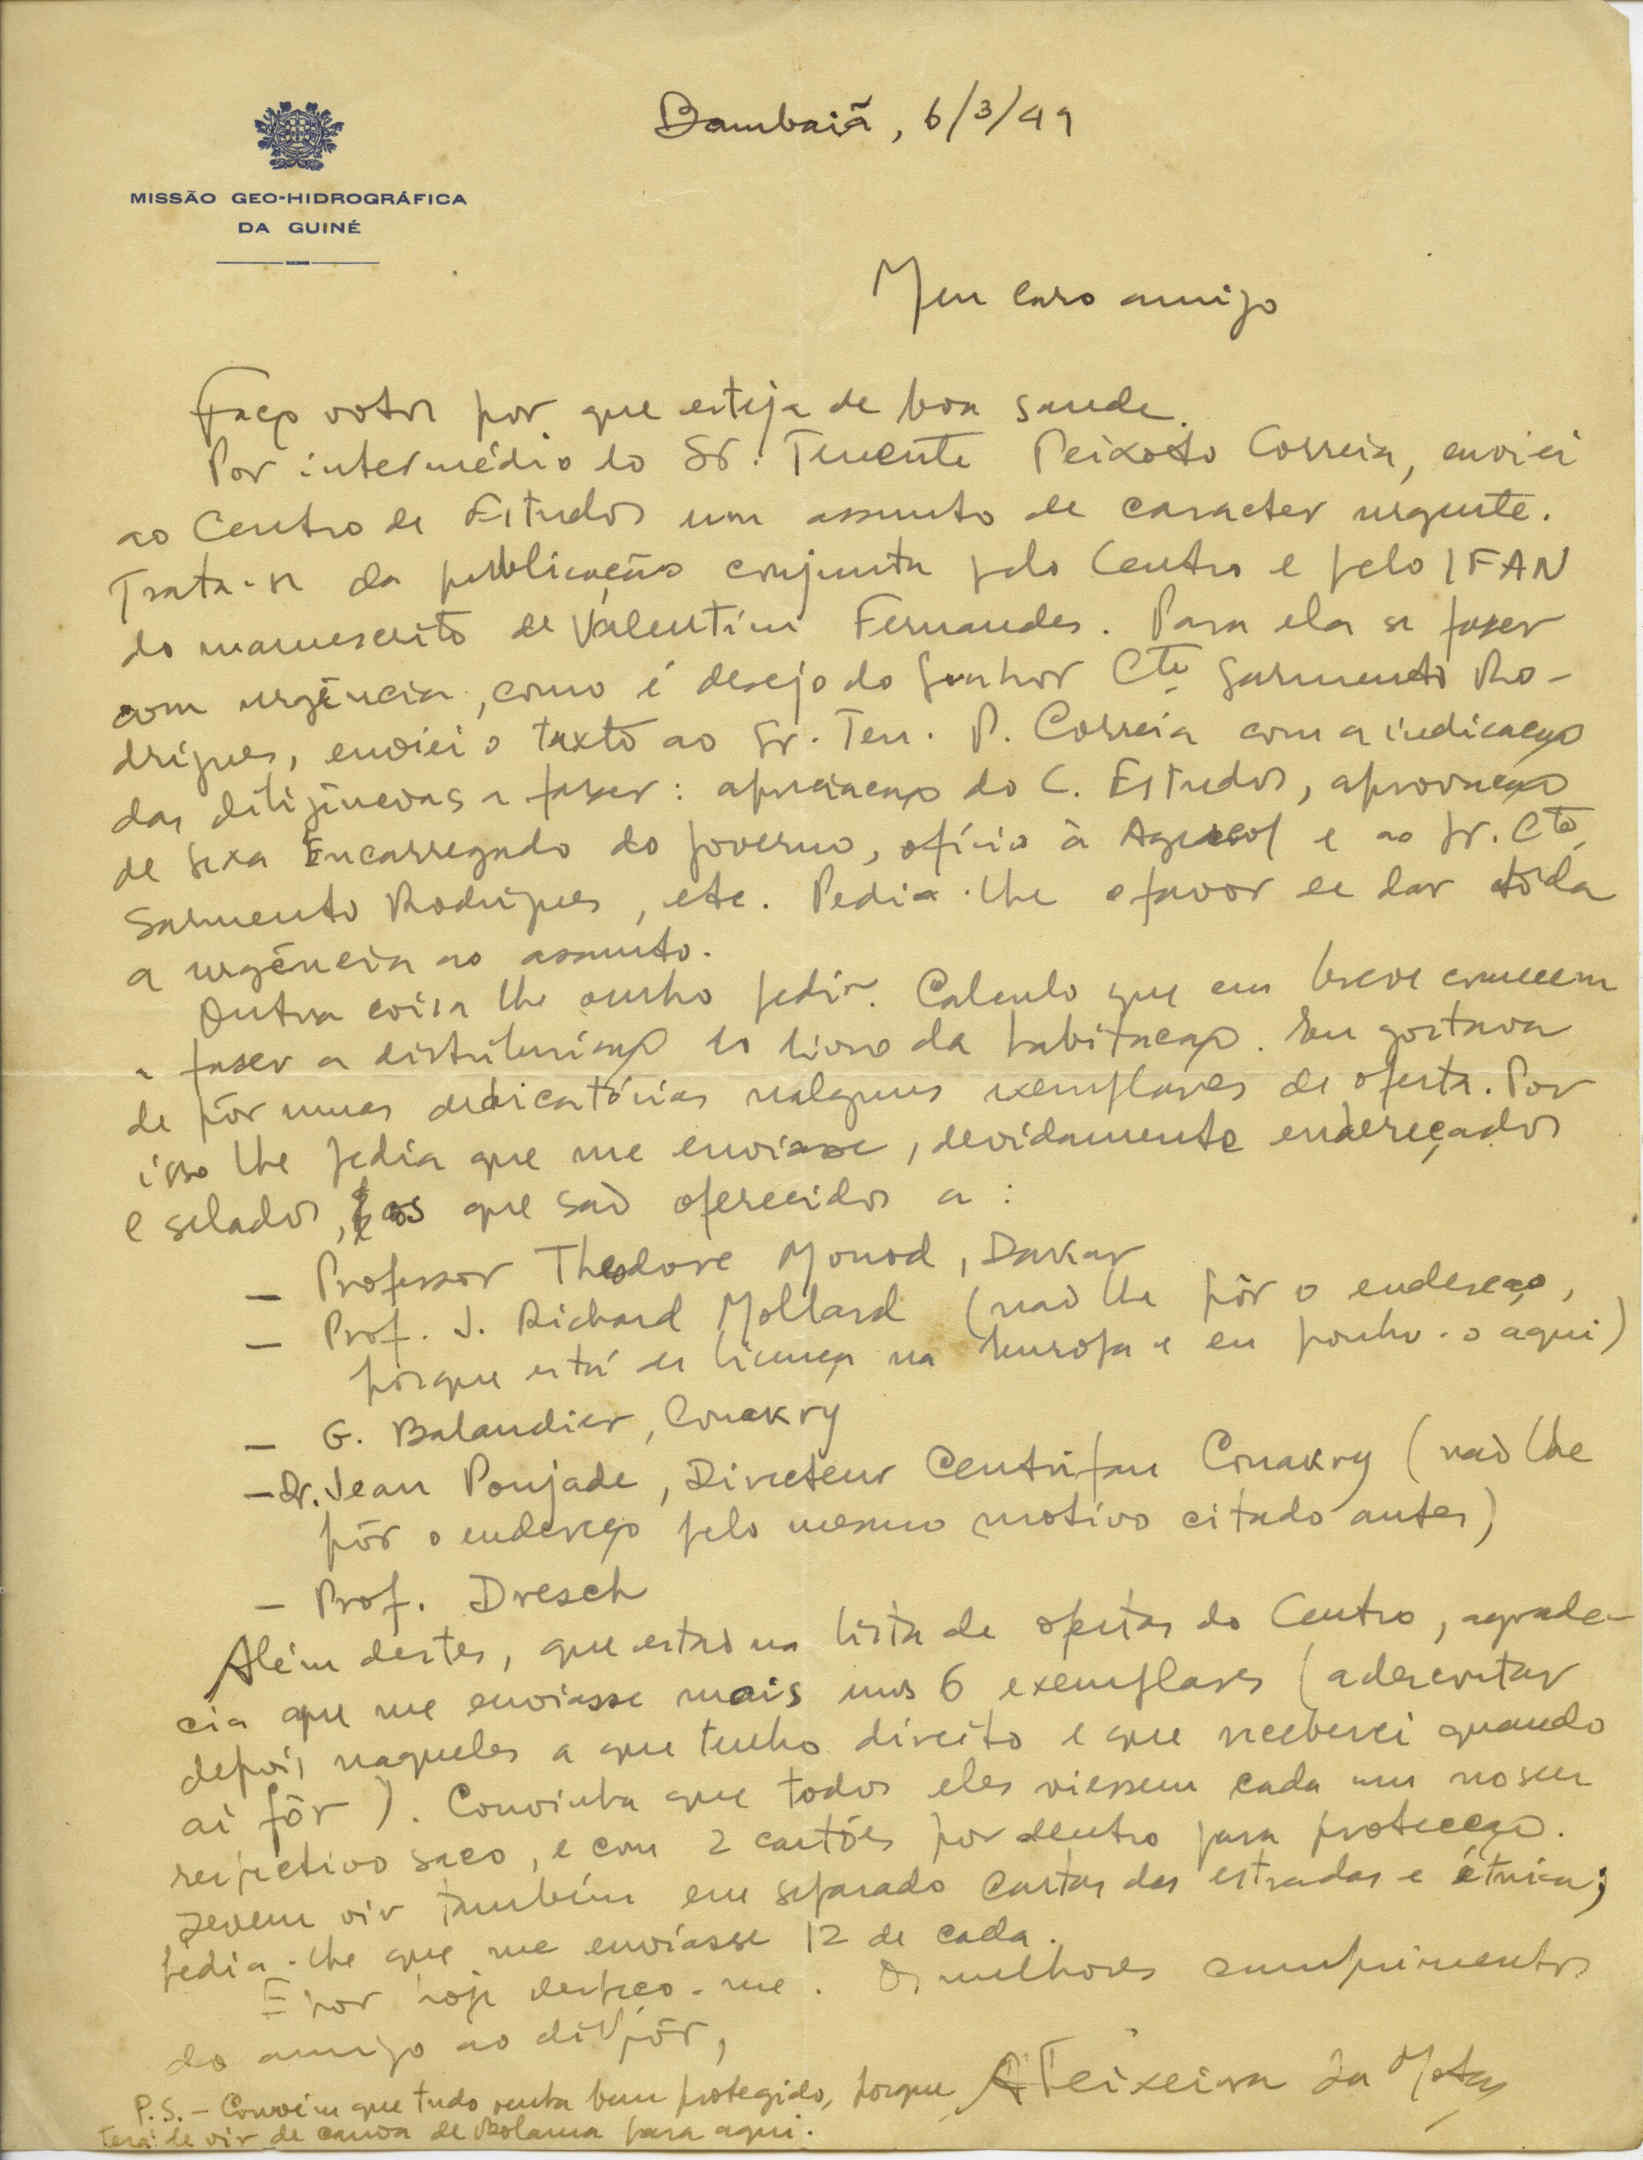 Bambaiã, 6/3/49
MISSÃO GEO-HIDROGRÁFICA
DA GUINÉ
Meu caro amigo
Faço votos por que esteja de boa saude.
Por intermédio do Sr. Tenente Peixoto Correia, enviei
ao Centro de Estudos um assunto de caracter urgente.
Trata-se da publicação conjunta pelo Centro e pelo IFAN
do manuscrito de Valentim Fernandes. Para ela se fazer
com urgência, como é desejo do Senhor Cte Sarmento Ro-
drigues, enviei o texto ao Sr. Ten. P. Correia com a indicação
das diligências a fazer: apreciação do C. Estudos, aprovação
de Sexa Encarregado do governo, ofício à Agecol e ao Sr. Cte
Sarmento Rodrigues, etc. Pedia-lhe o favor de dar tôda
a urgência ao assunto.
Outra coisa lhe venho pedir. Calculo que em breve comecem
a fazer a distribuição do livro da habitação. Eu gostava
de pôr umas dedicatórias nalguns exemplares de oferta. Por
isso lhe pedia que me enviasse, devidamente endereçados
e selados, os que são oferecidos a:
— Professor Theodore Monod, Dakar
— Prof. J. Richard Mollard (não lhe pôr o endereço,
porque está de licença na Europa e eu ponho-o aqui)
— G. Balandier, Conakry
— Dr. Jean Poujade, Directeur Centrifan Conakry (não lhe
pôr o endereço pelo mesmo motivo citado antes)
— Prof. Dresch
Além destes, que estão na lista de ofertas do Centro, agrade-
cia que me enviasse mais uns 6 exemplares (a descontar
depois naqueles a que tenho direito e que receberei quando
aí fôr). Convinha que todos eles viessem cada um no seu
respectivo saco, e com 2 cartões por dentro para protecção.
Devem vir também em separado cartas das estradas e étnica;
pedia-lhe que me enviasse 12 de cada.
E por hoje despeço-me. Os melhores cumprimentos
do amigo ao dispôr,
A Teixeira da Mota
P.S. — Convém que tudo venha bem protegido, porque
terá de vir de canoa de Bolama para aqui.